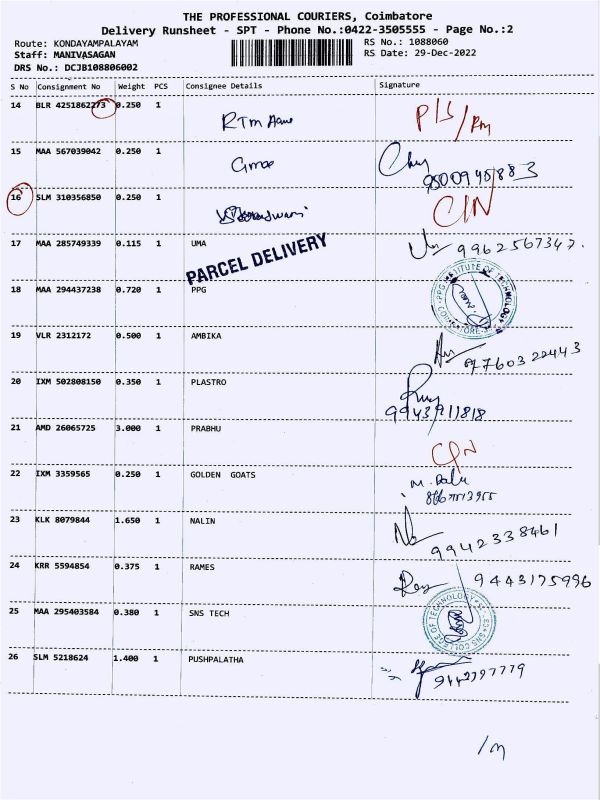 THE PROFESSIONAL COURIERS, Coimbatore
Delivery Runsheet - SPT - Phone No.:0422-3505555 - Page No.:2
Route: KONDAYAMPALAYAM
RS No.: 1088060
Staff: MANIVASAGAN
RS Date: 29-Dec-2022
DRS No.: DCJB108806002
S No Consignment No Weight PCS Consignee Details Signature
14 BLR 4251862273 0.250 1
15 MAA 567039042 0.250 1
16 SLM 310356850 0.250 1 CIN
17 MAA 285749339 0.115 1 UMA
PARCEL DELIVERY
18 MAA 294437238 0.720 1 PPG
PPG INSTITUTE OF TECHNOLOGY COIMBATORE
19 VLR 2312172 0.500 1 AMBIKA
20 IXM 502808150 0.350 1 PLASTRO
9943911818
21 AMD 26065725 3.000 1 PRABHU
22 IXM 3359565 0.250 1 GOLDEN GOATS
23 KLK 8079844 1.650 1 NALIN
9942338461
24 KRR 5594854 0.375 1 RAMES 9443175996
25 MAA 295403584 0.380 1 SNS TECH
SNS COLLEGE OF TECHNOLOGY
26 SLM 5218624 1.400 1 PUSHPALATHA